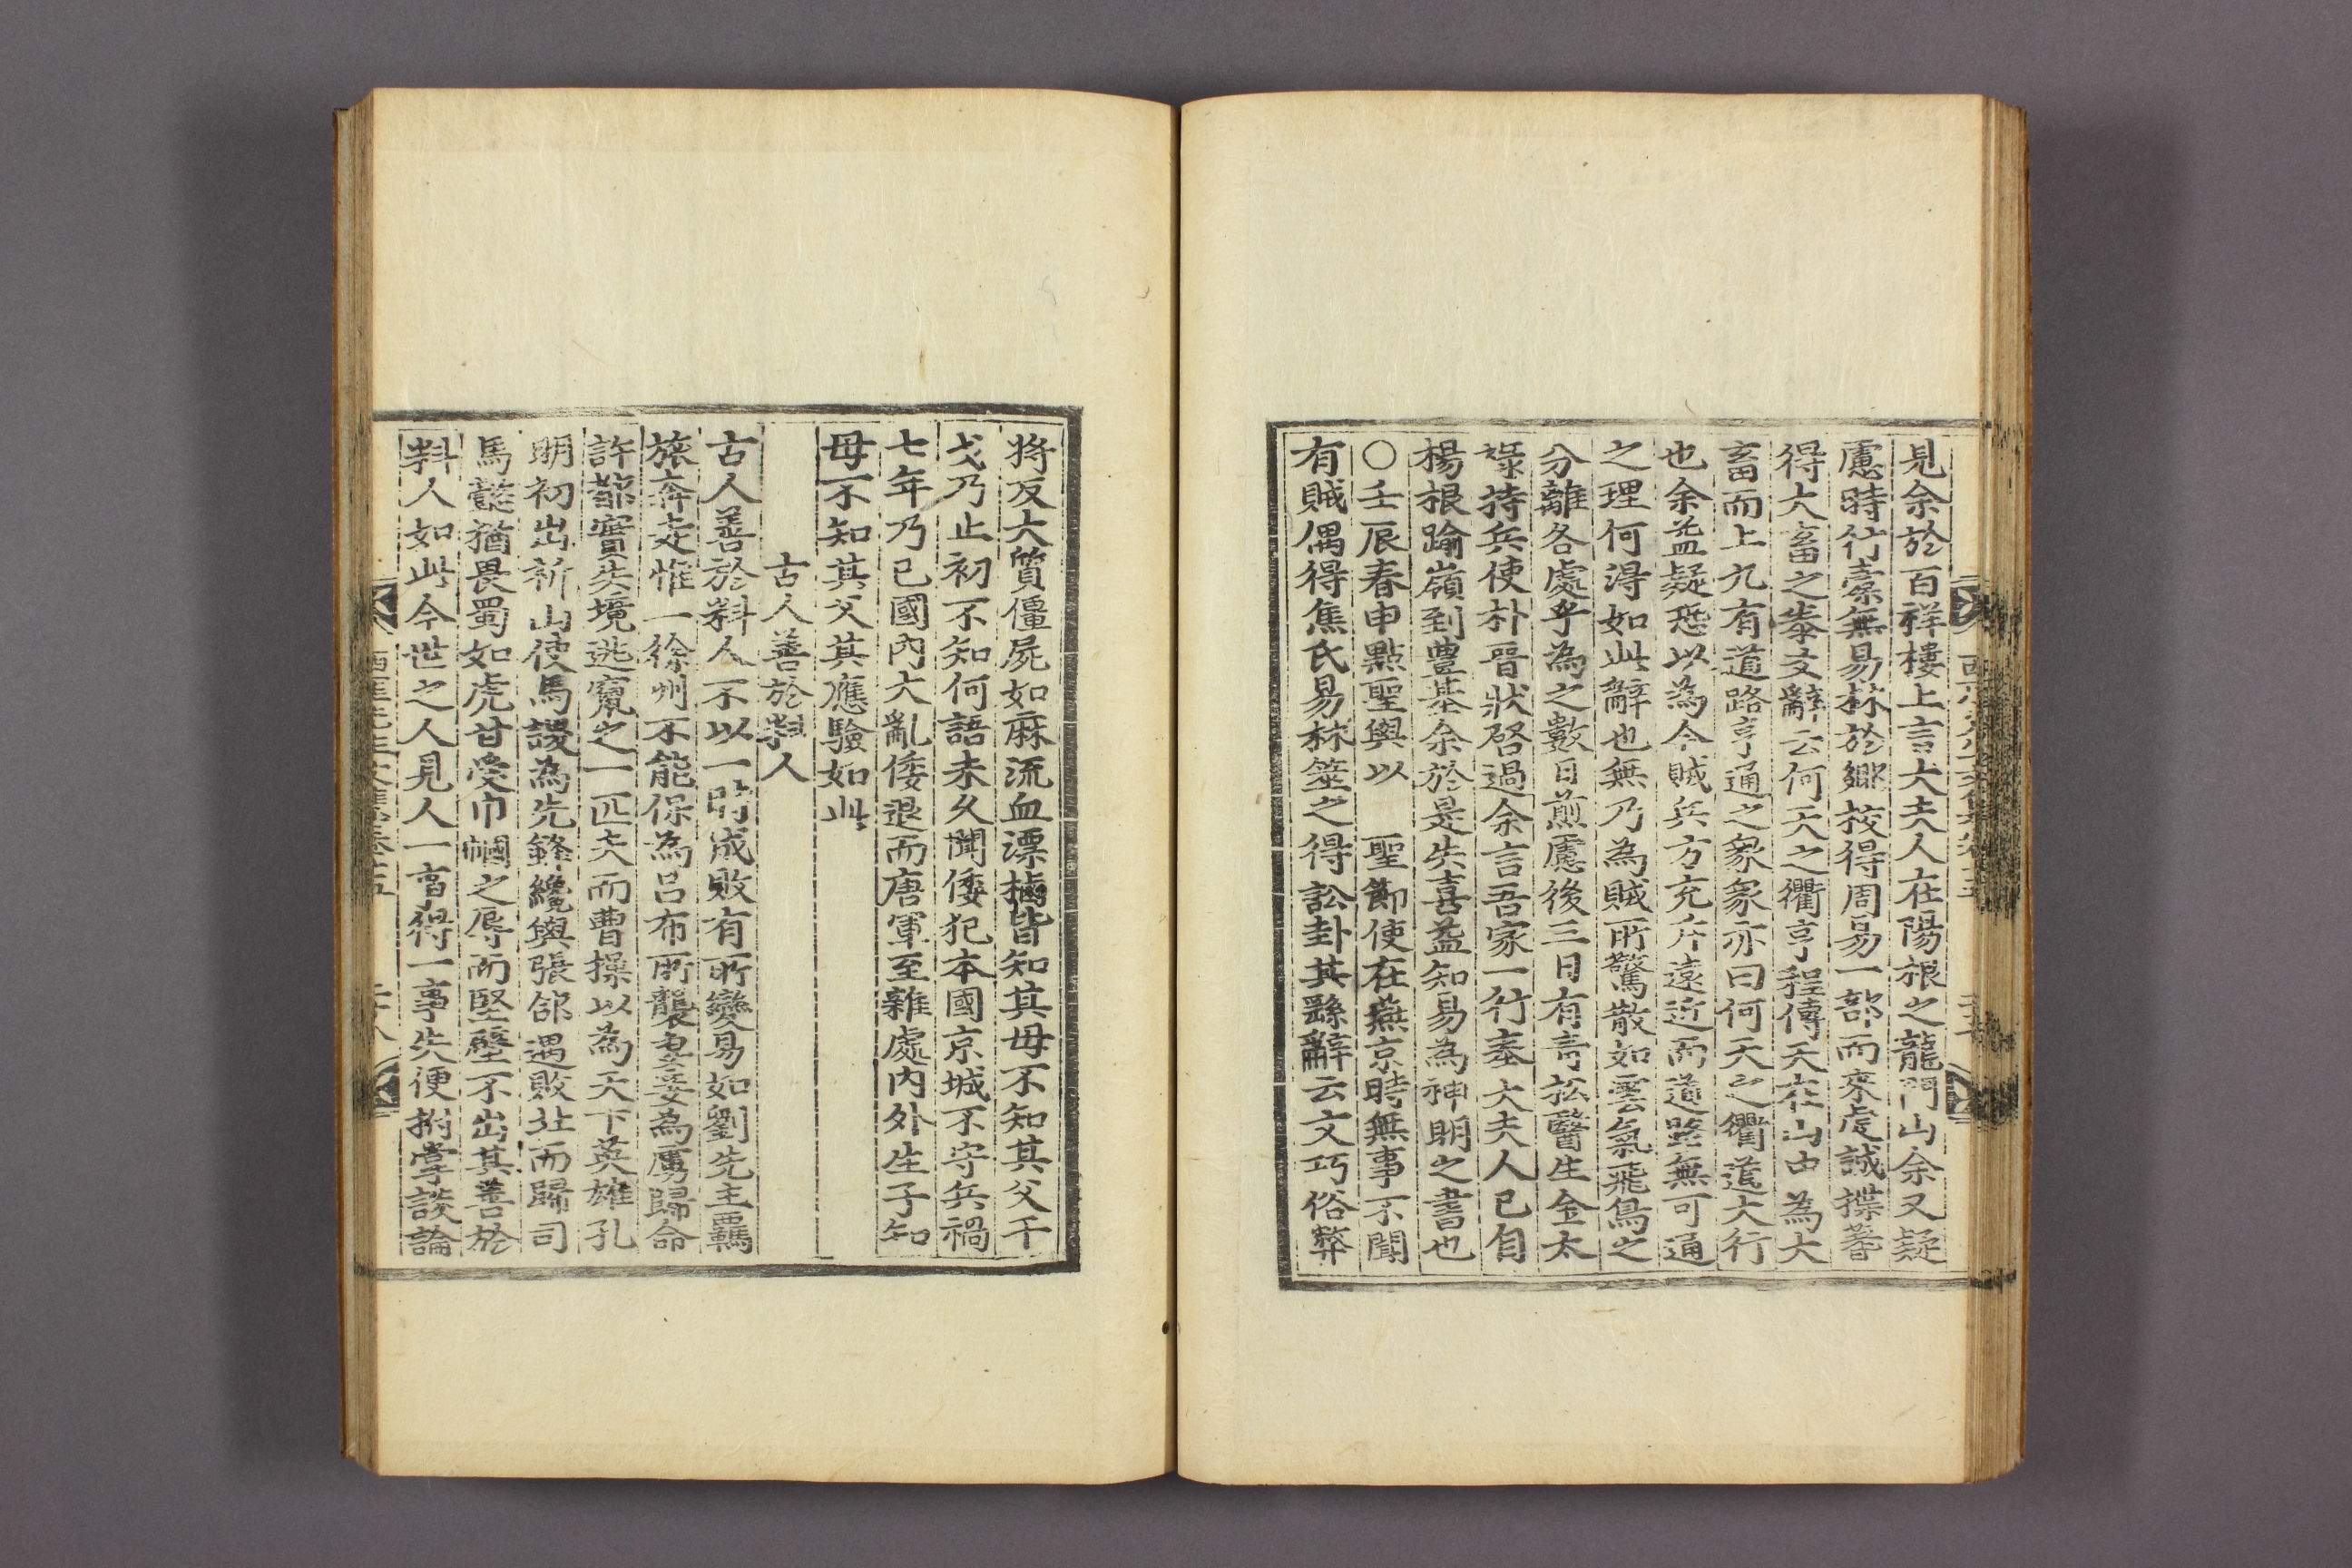 見余於百祥樓上言大夫人在陽根之龍門山余又疑
慮時行橐無易林於鄉校得周易一部而來虔誠揲蓍
得大畜之泰文辭云何天之衢亨程傳天在山中為大
畜而上九有道路亨通之象象亦曰何天之衢道大行
也余益疑恐以為今賊兵方充斥遠近而道路無可通
之理何得如此辭也無乃為賊所驚散如雲氣飛鳥之
分離各處乎為之數日煎慮後三日有靑松醫生金太
祿持兵使朴晉狀啓過余言吾家一行奉大夫人已自
楊根踰嶺到豊基余於是失喜益知易為神明之書也
○壬辰春申點聖輿以　聖節使在燕京時無事不聞
有賊偶得焦氏易林筮之得訟卦其繇辭云文巧俗弊
將反大質僵屍如麻流血漂櫓皆知其母不知其父干
戈乃止初不知何語未久聞倭犯本國京城不守兵禍
七年乃已國內大亂倭退而唐軍至雜處內外生子知
母不知其父其應驗如此
古人善於料人
古人善於料人不以一時成敗有所變易如劉先主羈
旅奔走惟一徐州不能保為呂布所襲妻妾為虜歸命
許都實失境逃竄之一匹夫而曹操以為天下英雄孔
明初出祈山使馬謖為先鋒纔與張郃遇敗北而歸司
馬懿猶畏蜀如虎甘受巾幗之辱而堅壁不出其善於
料人如此今世之人見人一言得一事失便拊掌談論
西厓先生文集卷十五　二十八